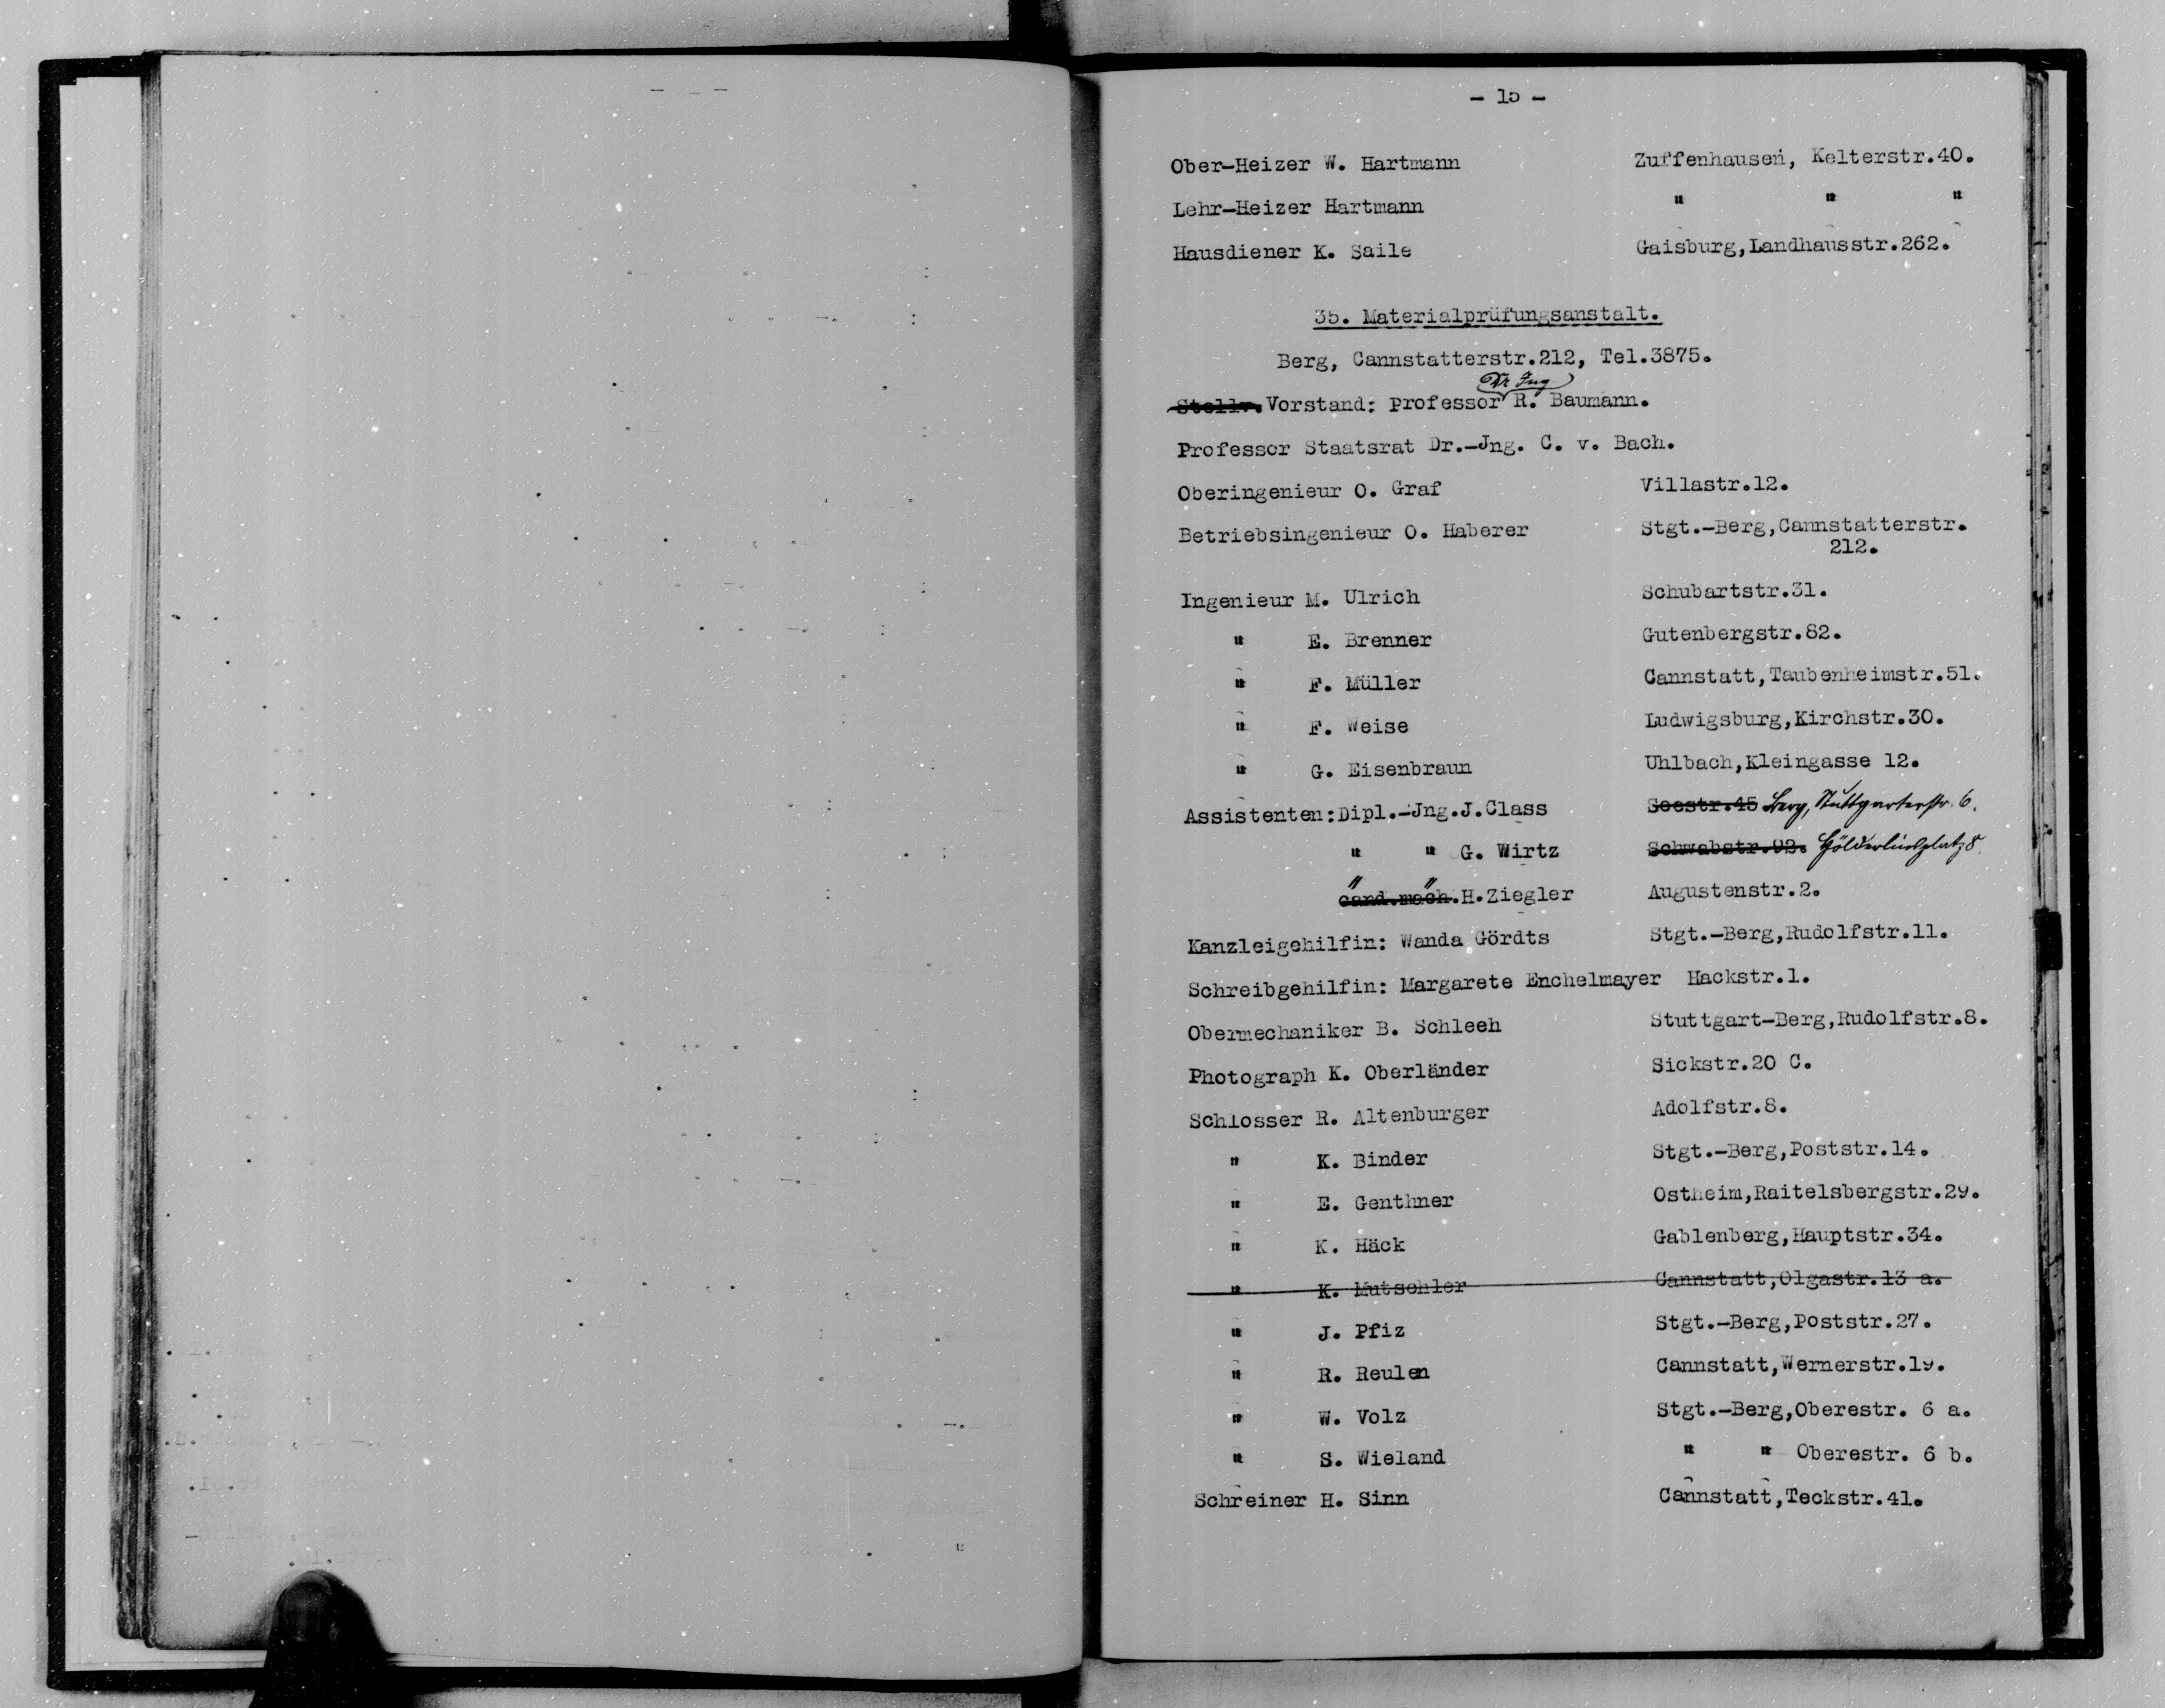 - 15 -
Ober-Heizer W. Hartmann Zuffenhausen, Kelterstr.40.
Lehr-Heizer Hartmann " " "
Hausdiener K. Saile Gaisburg,Landhausstr.262.
35. Materialprüfungsanstalt.
Berg, Cannstatterstr.212, Tel.3875.
Dr Ing
Stellv. Vorstand: Professor R. Baumann.
Professor Staatsrat Dr.-Jng. C. v. Bach.
Oberingenieur O. Graf Villastr.12.
Betriebsingenieur O. Haberer Stgt.-Berg,Cannstatterstr.
212.
Ingenieur M. Ulrich Schubartstr.31.
" E. Brenner Gutenbergstr.82.
" F. Müller Cannstatt,Taubenheimstr.51.
" F. Weise Ludwigsburg,Kirchstr.30.
" G. Eisenbraun Uhlbach,Kleingasse 12.
Assistenten:Dipl.-Jng.J.Class Seestr.45 Berg, Stuttgarterstr. 6.
" " G. Wirtz Schwabstr.92. Hölderlinsplatz 8.
" "
cand.mach.H.Ziegler Augustenstr.2.
Kanzleigehilfin: Wanda Gördts Stgt.-Berg,Rudolfstr.11.
Schreibgehilfin: Margarete Enchelmayer Hackstr.1.
Obermechaniker B. Schleeh Stuttgart-Berg,Rudolfstr.8.
Photograph K. Oberländer Sickstr.20 C.
Schlosser R. Altenburger Adolfstr.8.
" K. Binder Stgt.-Berg,Poststr.14.
" E. Genthner Ostheim,Raitelsbergstr.29.
" K. Häck Gablenberg,Hauptstr.34.
" K. Mutschler Cannstatt,Olgastr.13 a.
" J. Pfiz Stgt.-Berg,Poststr.27.
" R. Reulen Cannstatt,Wernerstr.19.
" W. Volz Stgt.-Berg,Oberestr. 6 a.
" S. Wieland " " Oberestr. 6 b.
Schreiner H. Sinn Cannstatt,Teckstr.41.